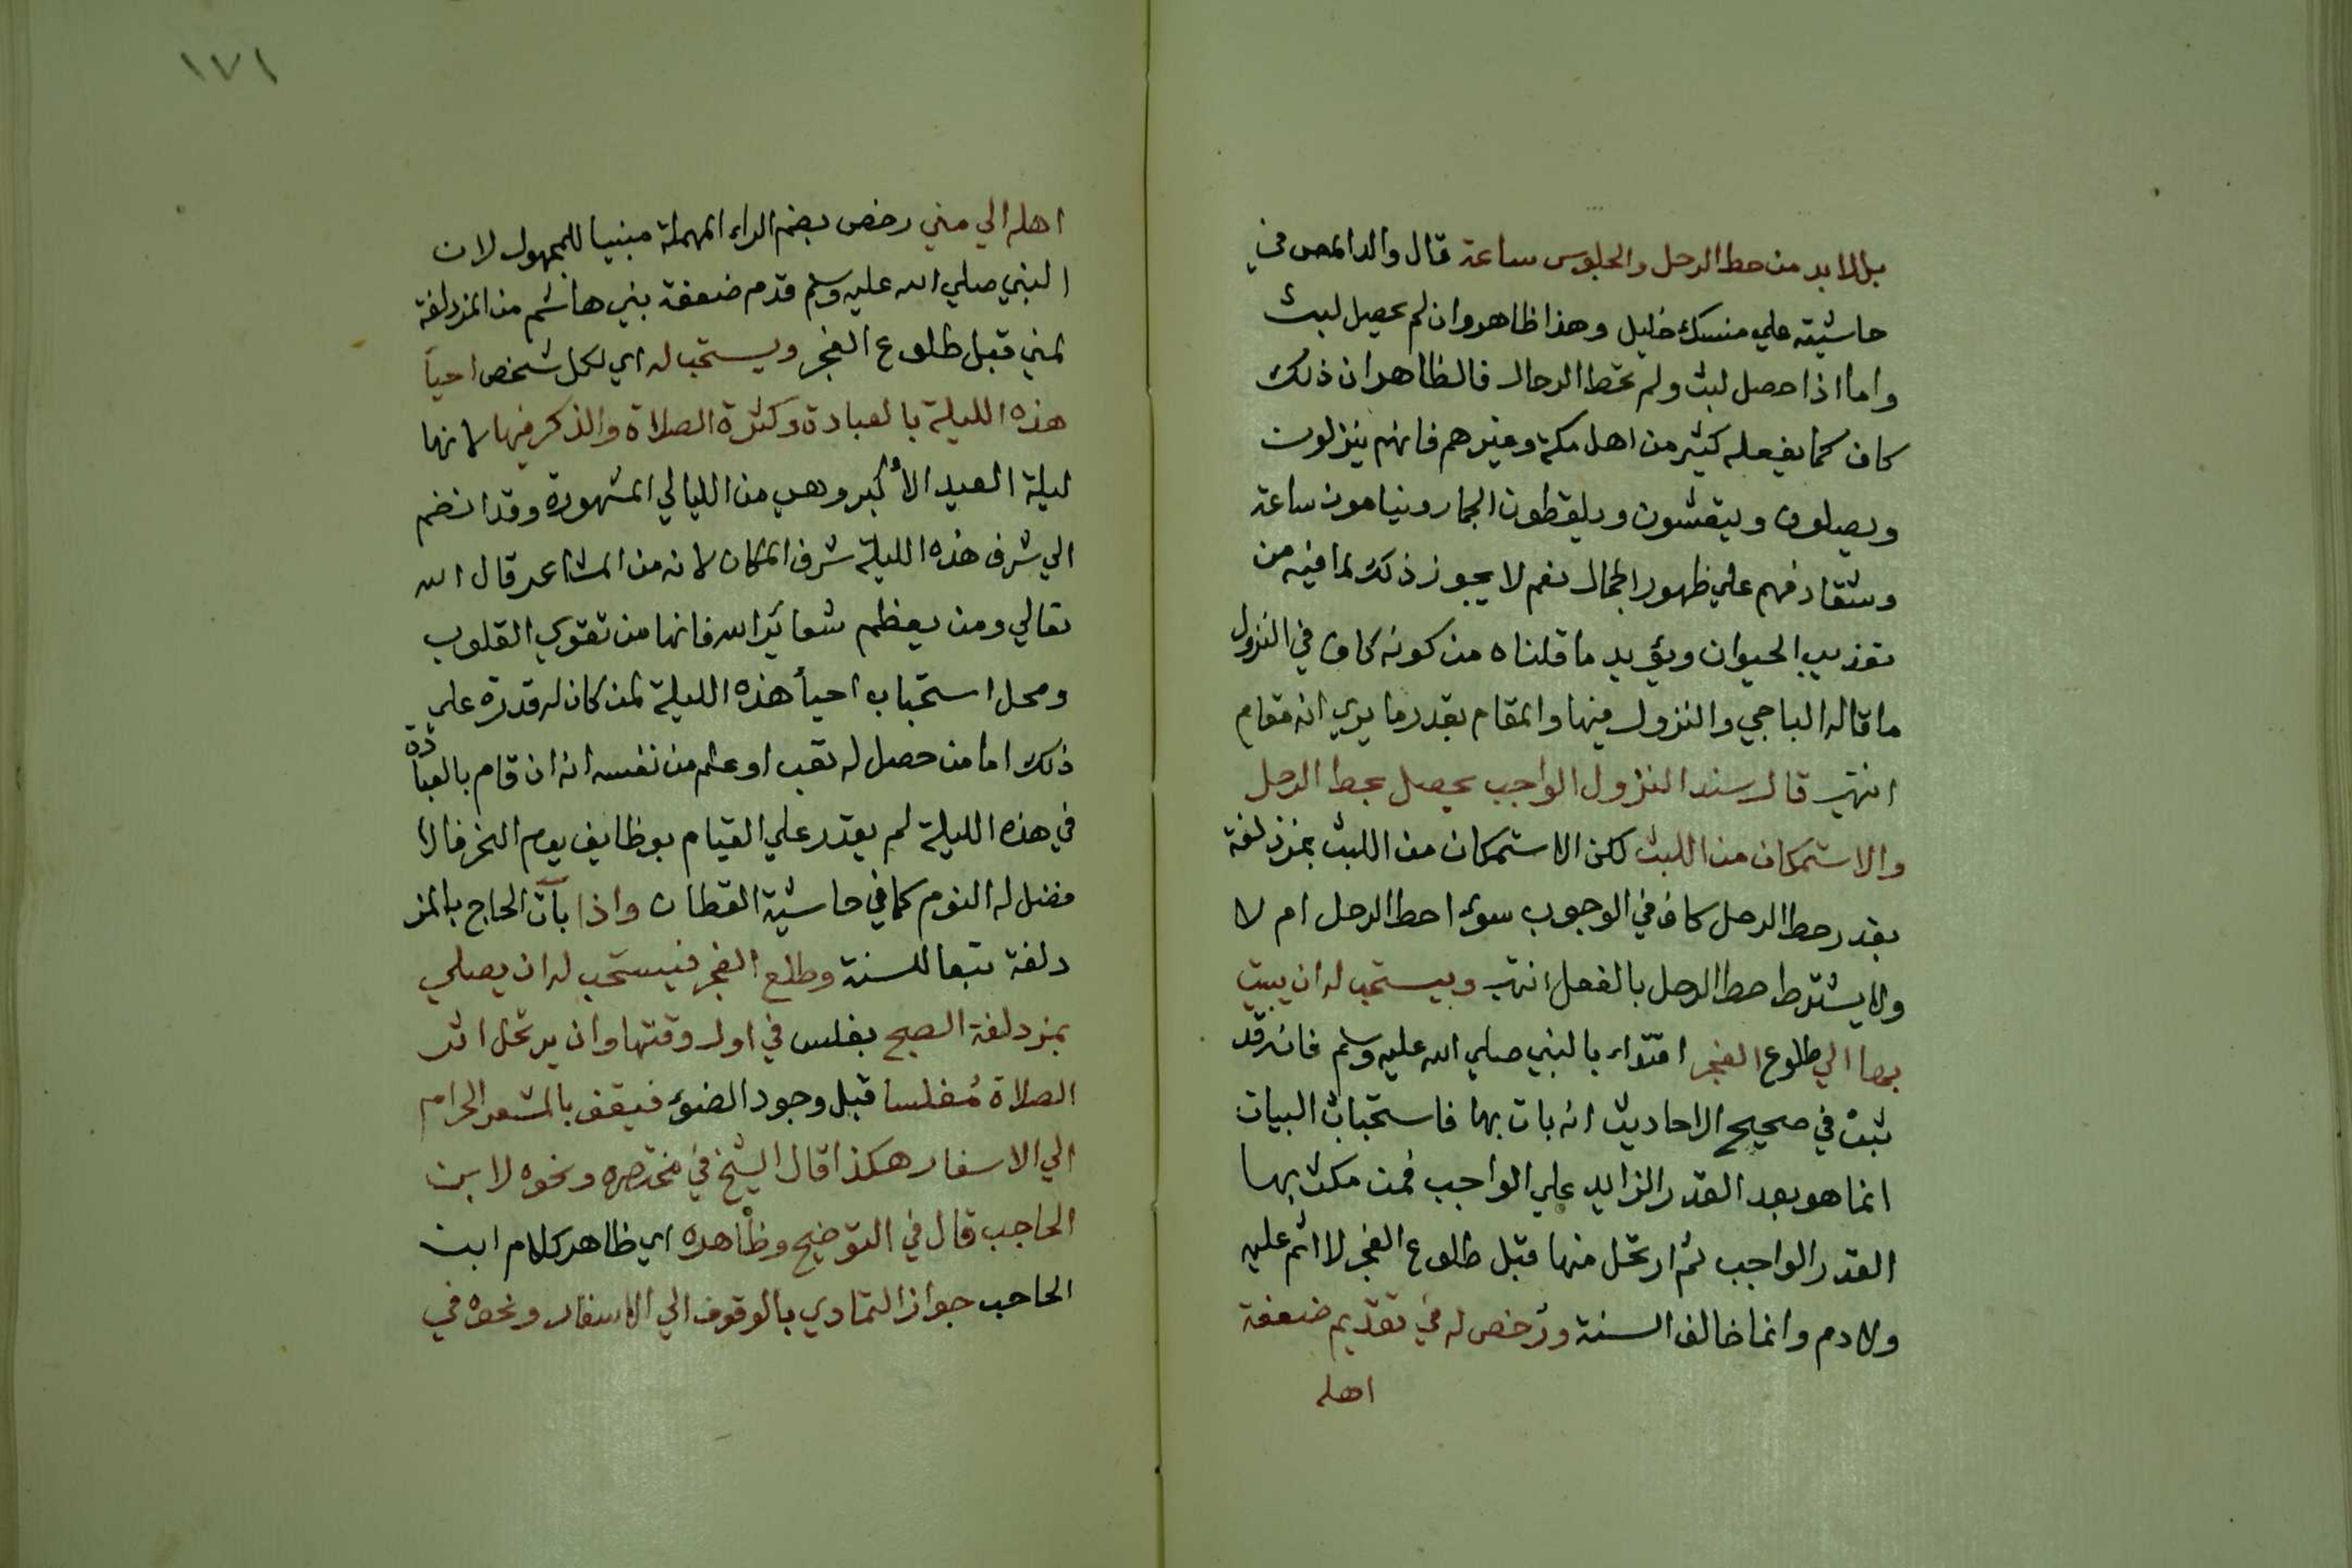 بل لا بد من حط الرحل والجلوس ساعة قال والد المص في
حاشيته علي منسك خليل وهذا ظاهر وان لم يحصل لبث
واما اذا حصل لبث ولم تحط الرحال فالظاهر ان ذلك
كاف كما يفعله كثير من اهل مكة وغيرهم فانهم ينزلون
ويصلون ويتعشون ويلقطون الجمار وينامون ساعة
وشقادفهم علي ظهور الجمال نعم لا يجوز ذلك لما فيه من
تعذيب الحيوان ويؤيد ما قلناه من كونه كاف في النزول
ما قاله الباجي والنزول فيها والمقام بقدر ما يري انه مقام
انتهي قال سند النزول الواجب يحصل بحط الرحل
والاستمكان من اللبث لكن الاستمكان من اللبث بمزدلفة
بقدر حط الرحل كاف في الوجوب سواء حط الرحل ام لا
ولا يشترط حط الرحل بالفعل انتهي ويستحب له ان يبيت
بها الي طلوع الفجر اقتداء بالنبي صلي الله عليه وسلم فانه قد
ثبت في صحيح الاحاديث انه بات بها فاستحباب البيات
انما هو بعد القدر الزايد علي الواجب فمن مكث بها
القدر الواجب ثم ارتحل منها قبل طلوع الفجر لا اثم عليه
ولا دم وانما خالف السنة ورُخص له في تقديم ضعفة
اهله
١٧١
اهله الي مني رخص بضم الراء المهملة مبنيا للمجهول لان
النبي صلي الله عليه وسلم قدم ضعفة بني هاشم من المزدلفة
لمني قبل طلوع الفجر ويستحب له اي لكل شخص احيأ
هذه الليلة بالعبادة وكثرة الصلاة والذكر فيها لانها
ليلة العيد الأكبر وهي من الليالي المشهورة وقد انضم
الي شرف هذه الليلة شرف المكان لانه من المشاعر قال الله
تعالي ومن يعظم شعائر الله فانها من تقوي القلوب
ومحل استحباب احيأ هذه الليلة لمن كان له قدرة علي
ذلك اما من حصل له تعب او علم من نفسه انه ان قام بالعبادة
في هذه الليلة لم يقدر علي القيام بوظايف يوم النحر فالا
فضل له النوم كما في حاشية القطان واذا بات الحاج بالمز
دلفة تبعا للسنة وطلع الفجر فيستحب له ان يصلي
بمزدلفة الصبح بغلس في اول وقتها وان يرتحل اثر
الصلاة مُغلسا قبل وجود الضوء فيقف بالمشعر الحرام
الي الاسفار هكذا قال الشيخ في مختصره ونحوه لابن
الحاجب قال في التوضيح وظاهره اي ظاهر كلام ابن
الحاجب جواز التمادي بالوقوف الي الاسفار ونحوه في